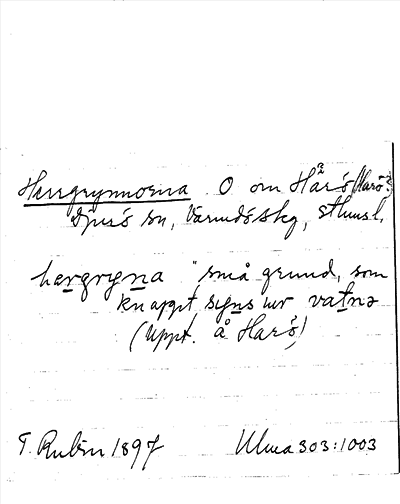 Herrgrynnorna O om Harö (Harö?
Djurö sn, Värmdö skg, Sthmsl.
hergryna "små grund, som
knappt syns ur vatnə
(uppt. å Harö)
T. Rubin 1897 Ulma 303:1003